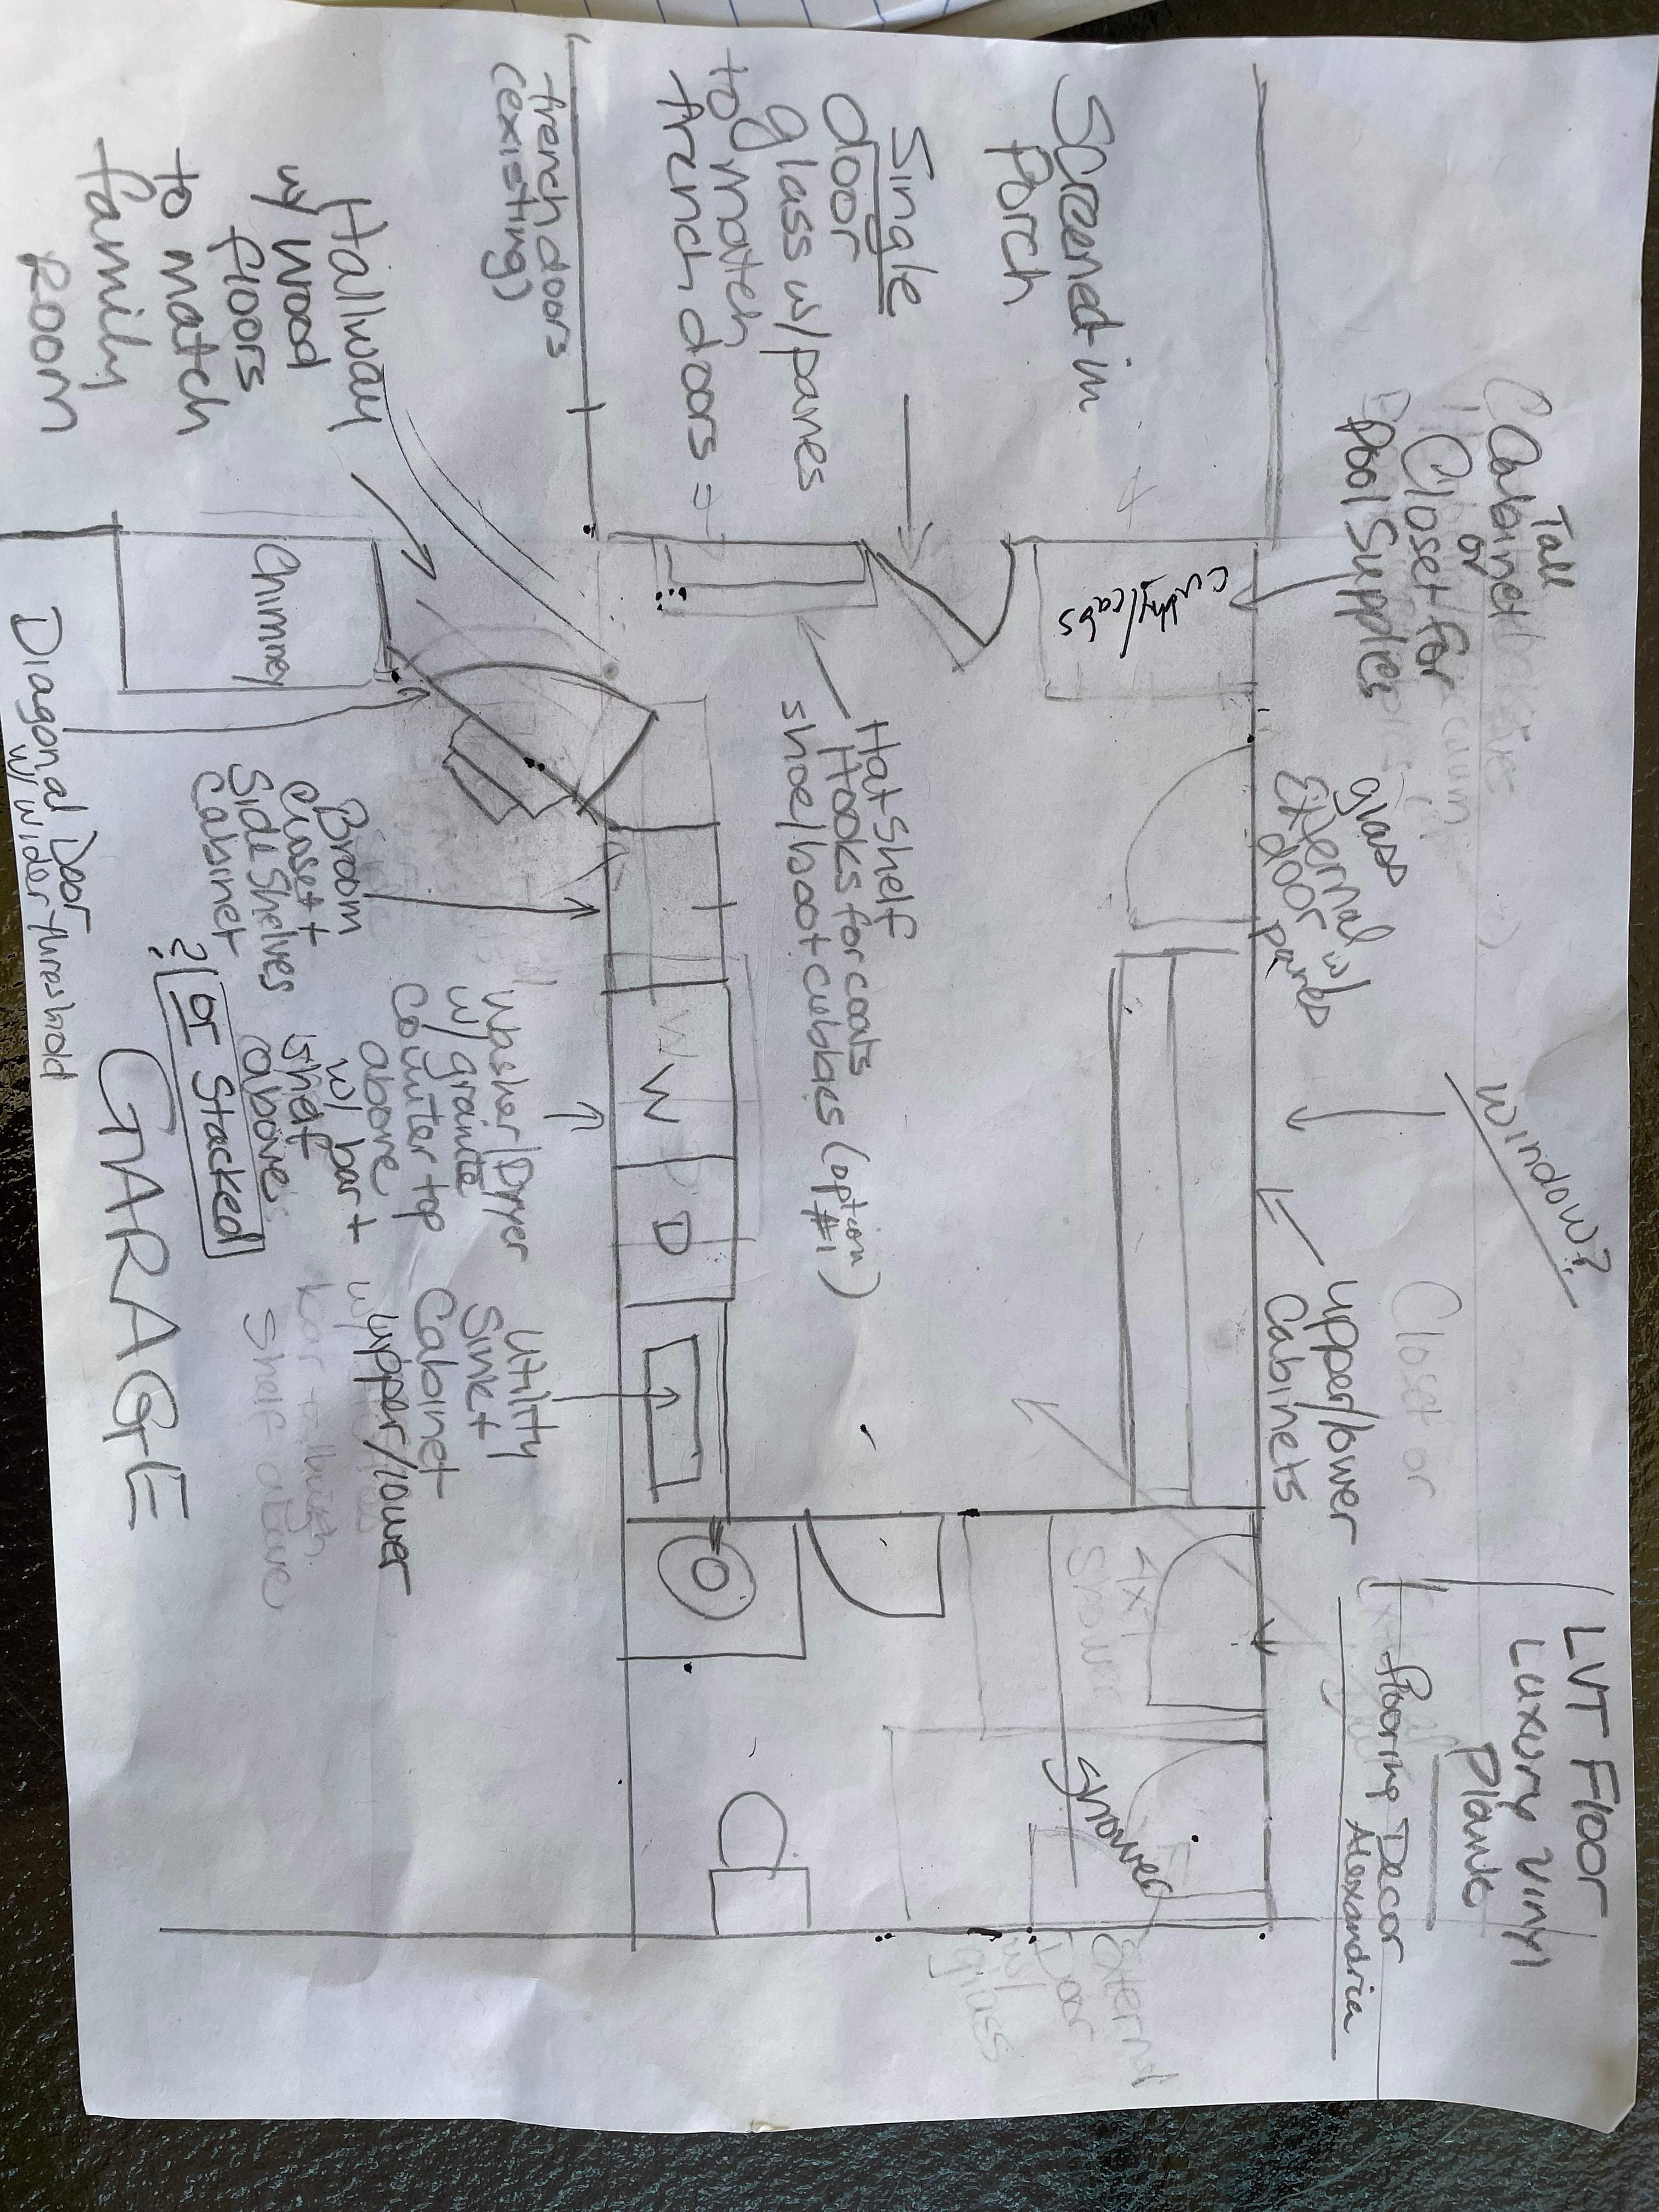 Tall
Cabinet
or
Closet for
Pool Supplies
Window?
LVT Floor
Luxury Vinyl
Planks
Flooring Decor
Alexandria
Closet or
glass
External w/
door panes
upper/lower
Cabinets
Screened in
Porch
cubby/cabs
Single
door
glass w/panes
to match
french doors =
french doors
(existing)
Hat shelf
Hooks for coats
shoe/boot cubbies (option
#1)
4x
Shower
Shower
External
Door
w/
glass
W
D
W
D
Hallway
w/ wood
floors
to match
family
room
Chimney
Diagonal Door
w/ wider threshold
Broom
closet +
Side Shelves
Cabinet
Washer/Dryer
w/ granite
Counter top
above
w/ bar +
shelf
above
? or Stacked
Utility
Sink +
Cabinet
w/ upper/lower
shelf above
GARAGE